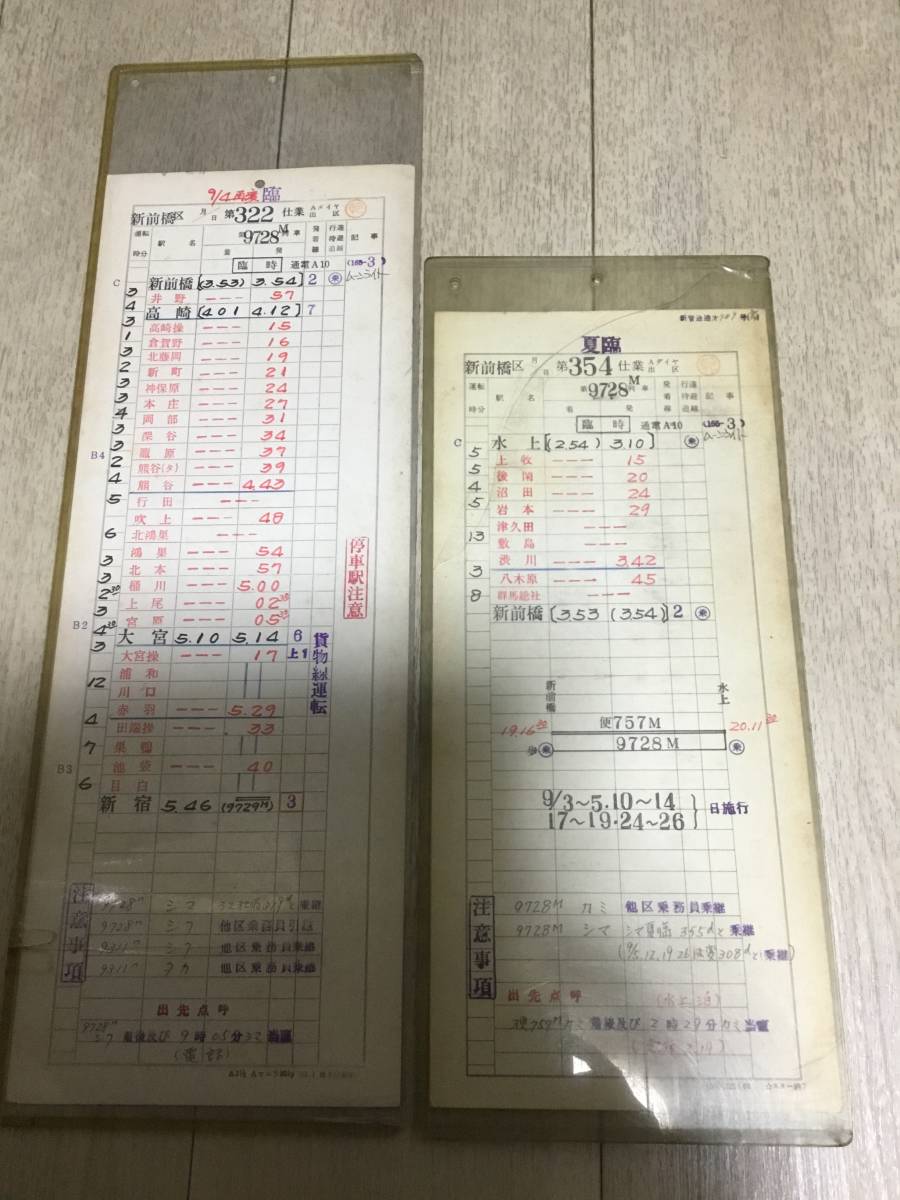 9/4 臨
新前橋区 月 日 第322仕業 Aダイヤ 出区
運転時分 駅名 9728M 列車 着 発 発着線 行違待避追越 記事
臨時 通電A10 (165-3)
C 新前橋 [(3.53) 3.54] 2 乗 ムーンライト
3 井野 --- 57
4 高崎 [4.01 4.12] 7
3 高崎操 --- 15
1 倉賀野 --- 16
3 北藤岡 --- 19
2 新町 --- 21
3 神保原 --- 24
3 本庄 --- 27
4 岡部 --- 31
3 深谷 --- 34
B4 3 籠原 --- 37
2 熊谷(タ) --- 39
4 熊谷 --- 4.43
5 行田 ---
吹上 --- 48
6 北鴻巣 ---
鴻巣 --- 54
3 北本 --- 57
3 桶川 --- 5.00
2 30 上尾 --- 02 30
3 宮原 --- 05 30
B2 4 30 大宮 5.10 5.14 6
3 大宮操 --- 17 上1
浦和
12 川口
赤羽 --- 5.29
4 田端操 --- 33
7 巣鴨
B3 池袋 --- 40
6 目白
新宿 5.46 (9729M) 3
停車駅注意
貨物線運転
注意事項
9728M シマ 乗継
9728M シク 他区乗務員引継
9311M シク 他区乗務員乗継
9311M タカ 他区乗務員乗継
出先点呼
9728M シク 最後及び 9時05分シマ 当直
(電話)
夏臨
新前橋区 月 日 第354仕業 Aダイヤ 出区
運転時分 駅名 9728M 列車 着 発 発着線 行違待避追越 記事
臨時 通電A10 (165-3)
C 水上 [(2.54) 3.10] 乗 ムーンライト
5 上牧 --- 15
5 後閑 --- 20
4 沼田 --- 24
5 岩本 --- 29
津久田 ---
13 敷島 ---
渋川 --- 3.42
3 八木原 --- 45
8 群馬総社 ---
新前橋 [3.53 (3.54)] 2 乗
新前橋 水上
19.16 30 便757M 20.11 30
歩 乗 9728M 乗
9/3～5.10～14
17～19.24～26 日施行
注意事項
9728M カミ 他区乗務員乗継
9728M シマ シマ夏臨355dと乗継
(9/5.12.19.26は変308dと乗継)
出先点呼 (水上泊)
757M カミ 最後及び 2時29分カミ当直